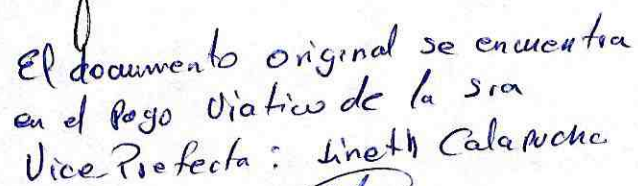 El documento original se encuentra
en el Pago Viatico de la Sra
Vice Prefecta: Lineth Calapucha